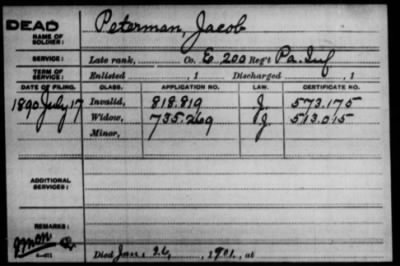 DEAD
NAME OF SOLDIER: Peterman, Jacob
SERVICE: Late rank, Co. E 200 Reg't Pa. Inf
TERM OF SERVICE: Enlisted , 1 Discharged , 1
DATE OF FILING. CLASS. APPLICATION NO. LAW. CERTIFICATE NO.
1890 July 17 Invalid, 818.819 J. 573.175
Widow, 735.269 J. 513.015
Minor,
ADDITIONAL SERVICES:
REMARKS:
Died Jan. 26, 1901, at